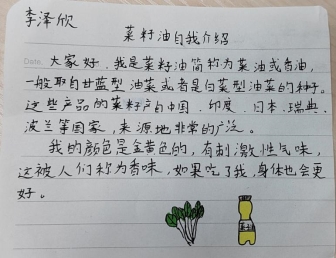 李泽欣
菜籽油自我介绍
Date.
大家好,我是菜籽油简称为菜油或香油,
一般取自甘蓝型油菜或者是白菜型油菜的种子。
这些产品的菜籽产自中国、印度、日本、瑞典、
波兰等国家,来源地非常的广泛。
我的颜色是金黄色的,有刺激性气味,
这被人们称为香味,如果吃了我,身体也会更
好。